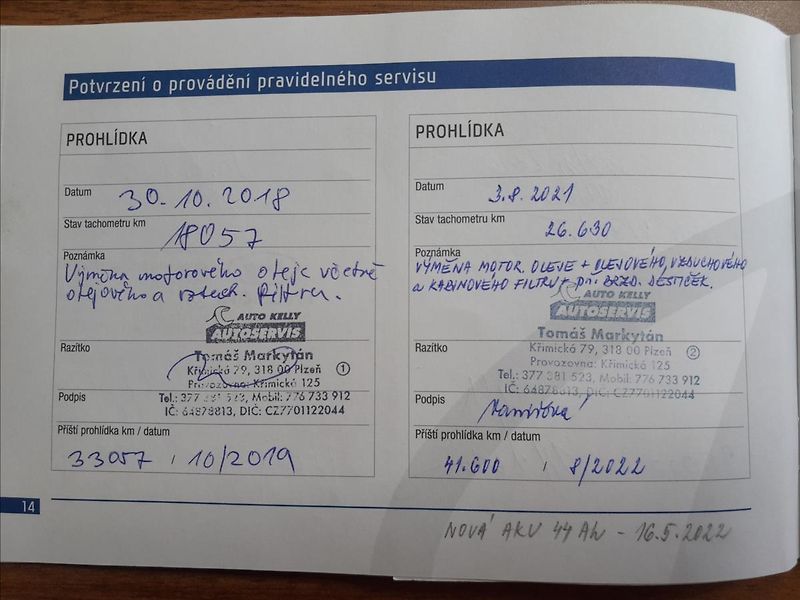 Potvrzení o provádění pravidelného servisu
PROHLÍDKA
Datum 30.10.2018
Stav tachometru km 18057
Poznámka
Výměna motorového oleje včetně
olejového a vzduch. filtru.
AUTO KELLY
AUTOSERVIS
Razítko
Tomáš Markytán
Křimická 79, 318 00 Plzeň 1
Provozovna: Křimická 125
Podpis
Tel.: 377 381 523, Mobil: 776 733 912
IČ: 64878813, DIČ: CZ7701122044
Příští prohlídka km / datum
33057 / 10/2019
PROHLÍDKA
Datum 3.8.2021
Stav tachometru km 26.630
Poznámka
VÝMĚNA MOTOR. OLEJE + OLEJOVÉHO, VZDUCHOVÉHO
a KABINOVÉHO FILTRU + BRZD. DESTIČEK.
AUTO KELLY
AUTOSERVIS
Tomáš Markytán
Razítko
Křimická 79, 318 00 Plzeň 2
Provozovna: Křimická 125
Tel.: 377 381 523, Mobil: 776 733 912
IČ: 64878813, DIČ: CZ7701122044
Podpis
Příští prohlídka km / datum
41.600 / 8/2022
14
NOVÁ AKU 44 Ah - 16.5.2022